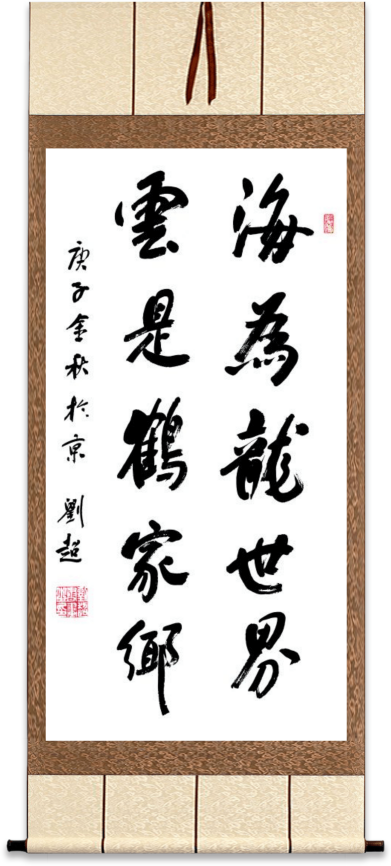 海為龍世界
雲是鶴家鄉
庚子金秋於京 劉超